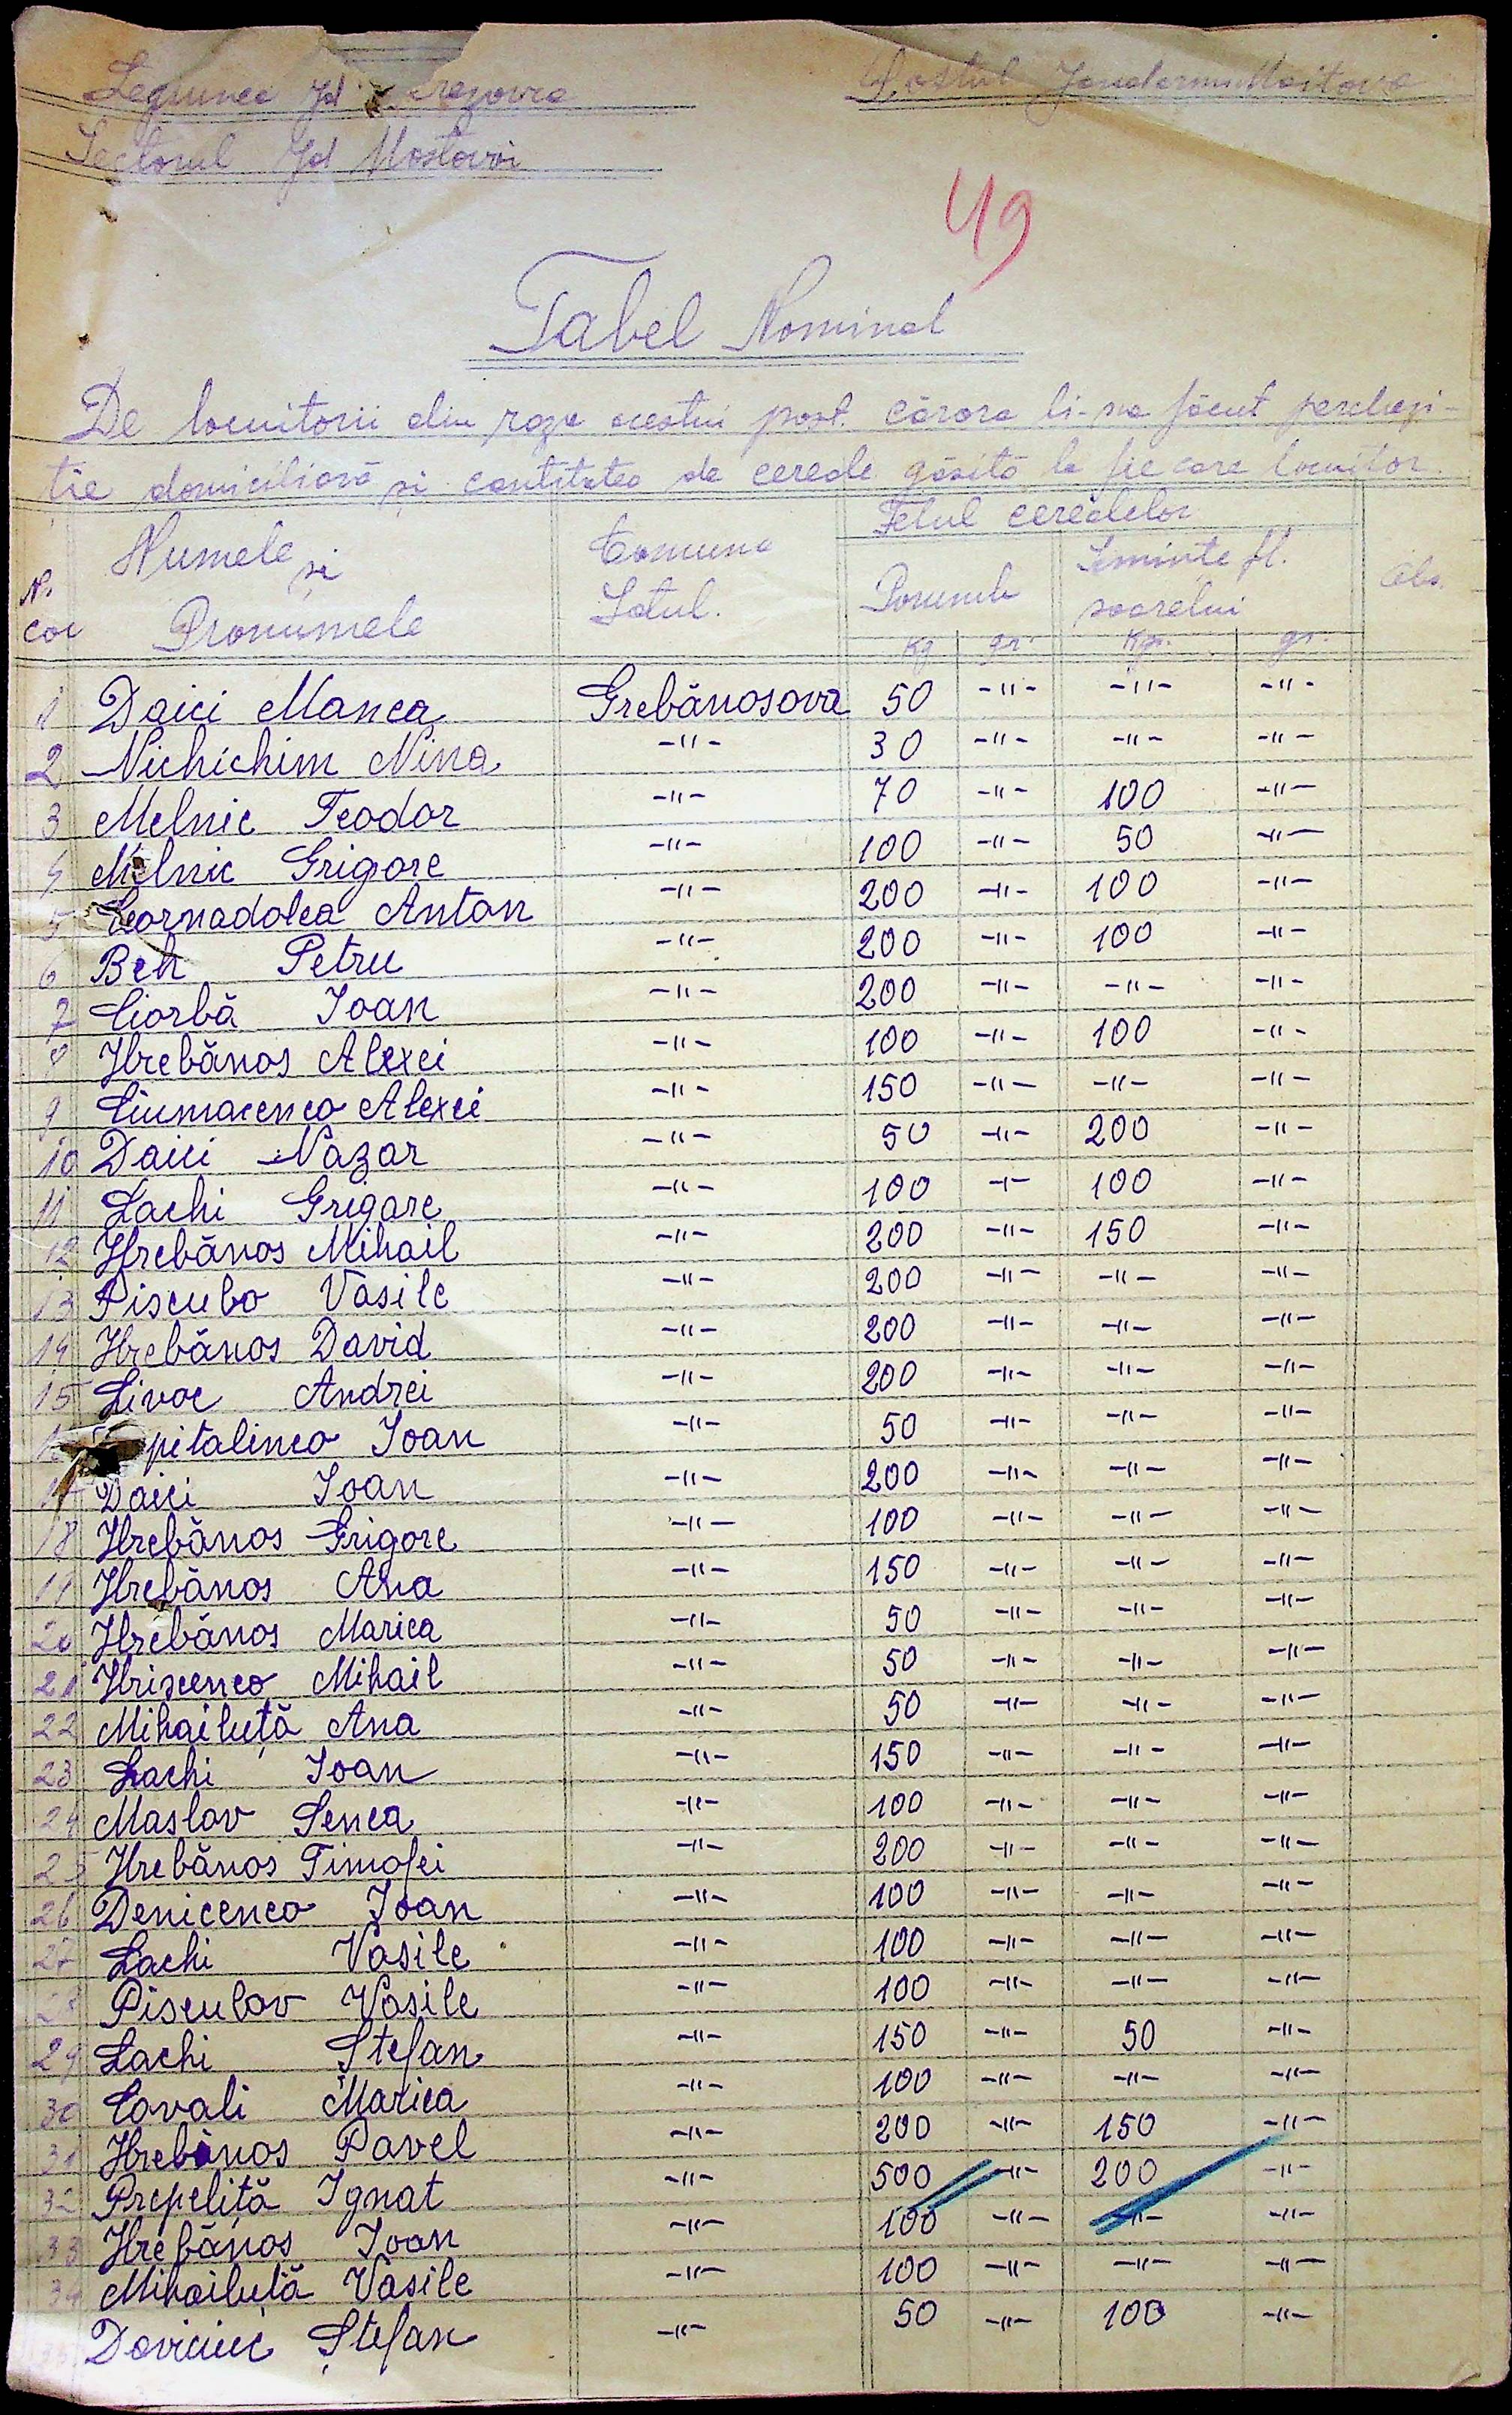 Legiunea Jd
Postul Jandarmi
Sectorul Jd Mostovoi
49
Tabel Nominal
De locuitorii din raza acestui post. cărora li-sa făcut perchezi-
ție domiciliară și cantitatea de cereale găsită la fie care locuitor.
Nr. cor Numele și Pronumele Comuna Satul. Felul cerealelor Obs.
Porumb Seminte fl. soarelui
Kg gr. Kgr. gr.
1 Daici Manca Grebănosova 50 -"- -"- -"-
2 Nichichim Nina -"- 30 -"- -"- -"-
3 Melnic Teodor -"- 70 -"- 100 -"-
4 Melnic Grigore -"- 100 -"- 50 -"-
5 Anton -"- 200 -"- 100 -"-
6 Beh Petru -"- 200 -"- 100 -"-
7 Ciorbă Ioan -"- 200 -"- -"- -"-
8 Hrebănos Alexei -"- 100 -"- 100 -"-
9 Ciumacenco Alexei -"- 150 -"- -"- -"-
10 Daici Nazar -"- 50 -"- 200 -"-
11 Lachi Grigore -"- 100 -"- 100 -"-
12 Hrebănos Mihail -"- 200 -"- 150 -"-
13 Pisculo Vasile -"- 200 -"- -"- -"-
14 Hrebănos David -"- 200 -"- -"- -"-
15 Livoc Andrei -"- 200 -"- -"- -"-
pitalinco Ioan -"- 50 -"- -"- -"-
17 Daici Ioan -"- 200 -"- -"- -"-
18 Hrebănos Grigore -"- 100 -"- -"- -"-
19 Hrebănos Ana -"- 150 -"- -"- -"-
20 Hrebănos Marica -"- 50 -"- -"- -"-
21 Hriscenco Mihail -"- 50 -"- -"- -"-
22 Mihailuță Ana -"- 50 -"- -"- -"-
23 Lachi Ioan -"- 150 -"- -"- -"-
24 Maslov Senca -"- 100 -"- -"- -"-
25 Hrebănos Timofei -"- 200 -"- -"- -"-
26 Denicenco Ioan -"- 100 -"- -"- -"-
27 Lachi Vasile -"- 100 -"- -"- -"-
28 Pisculov Vasile -"- 100 -"- -"- -"-
29 Lachi Ștefan -"- 150 -"- 50 -"-
30 Covali Marica -"- 100 -"- -"- -"-
31 Hrebănos Pavel -"- 200 -"- 150 -"-
32 Prepeliță Ignat -"- 500 -"- 200 -"-
33 Hrebănos Ioan -"- 100 -"- -"- -"-
34 Mihailuță Vasile -"- 100 -"- -"- -"-
Ștefan -"- 50 -"- 100 -"-